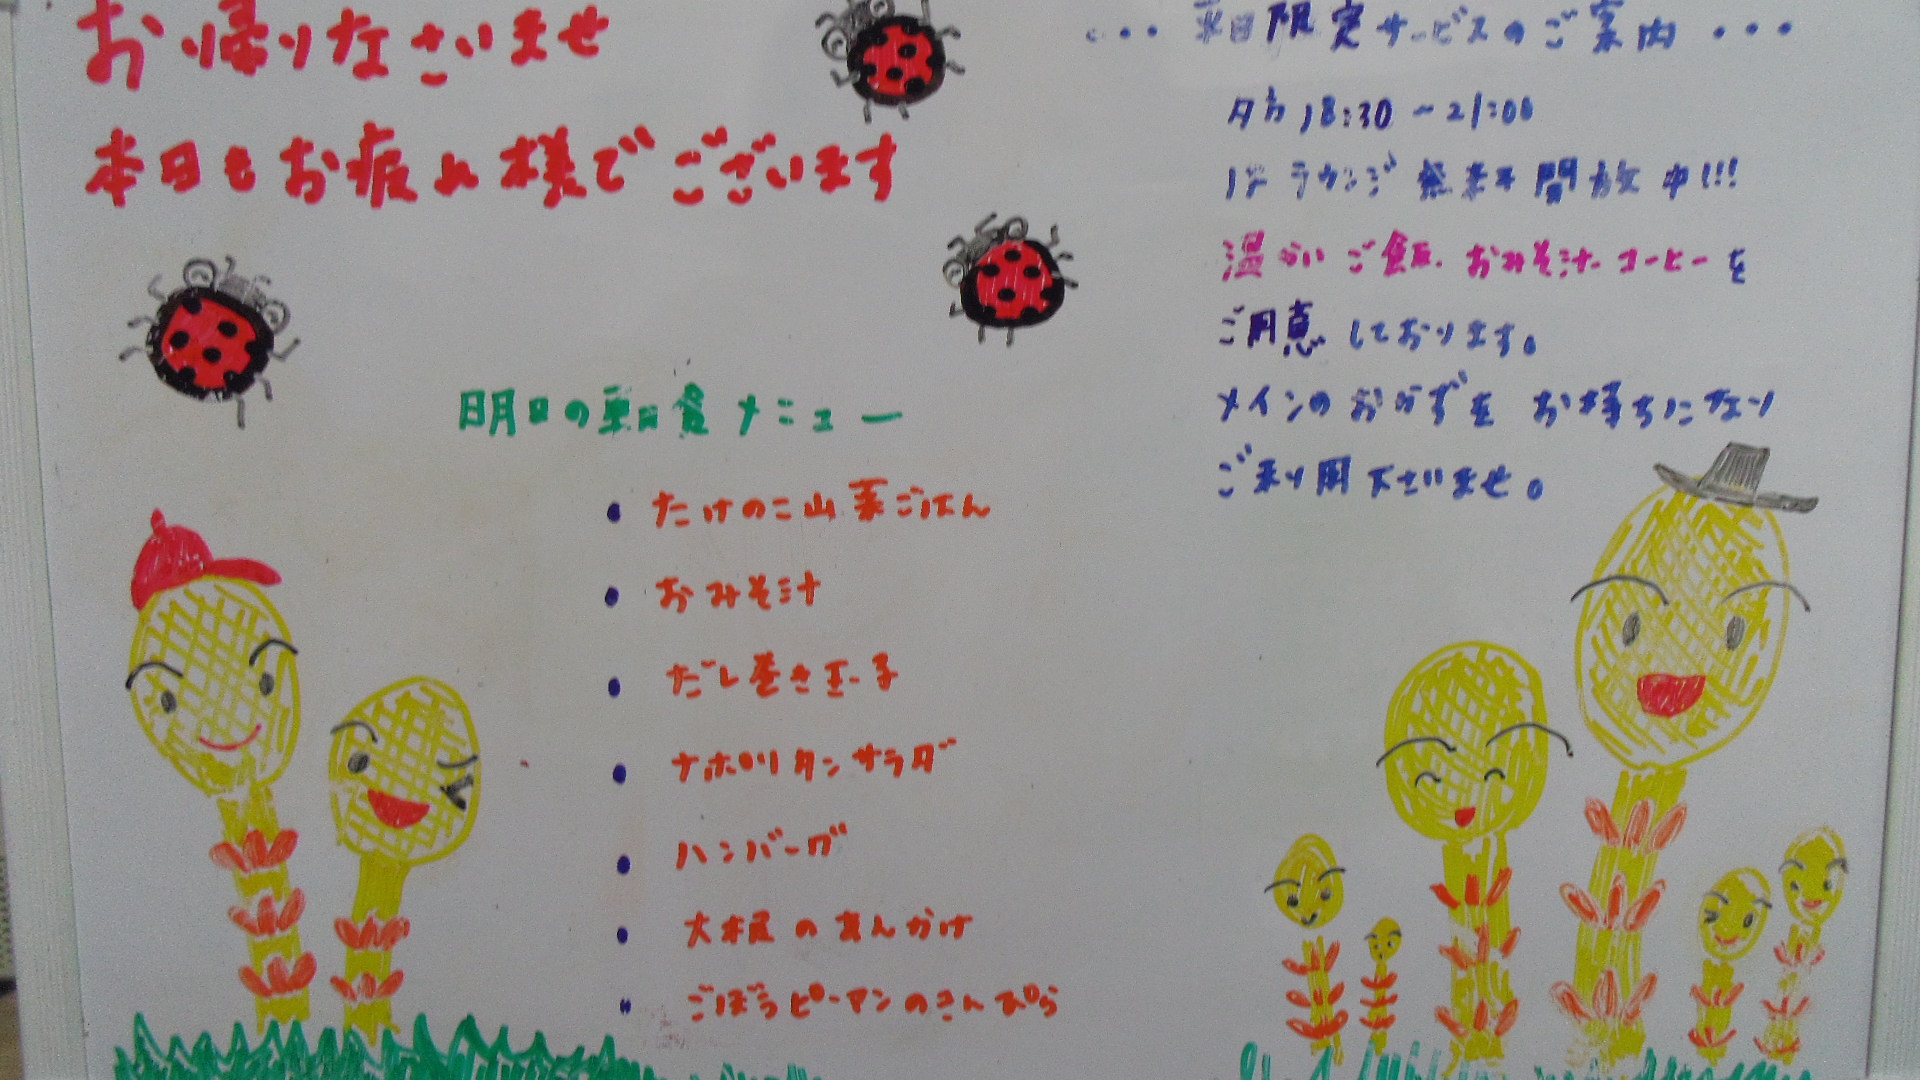 お帰りなさいませ
本日もお疲れ様でございます
明日の朝食メニュー
・たけのこ山菜ごはん
・おみそ汁
・だし巻き玉子
・ナポリタンサラダ
・ハンバーグ
・大根のあんかけ
・ごぼうピーマンのきんぴら
・・・平日限定サービスのご案内・・・
夕方18:30～21:00
1Fラウンジ無料開放中!!!
温かいご飯、おみそ汁、コーヒーを
ご用意しております。
メインのおかずをお持ちになり
ご利用下さいませ。